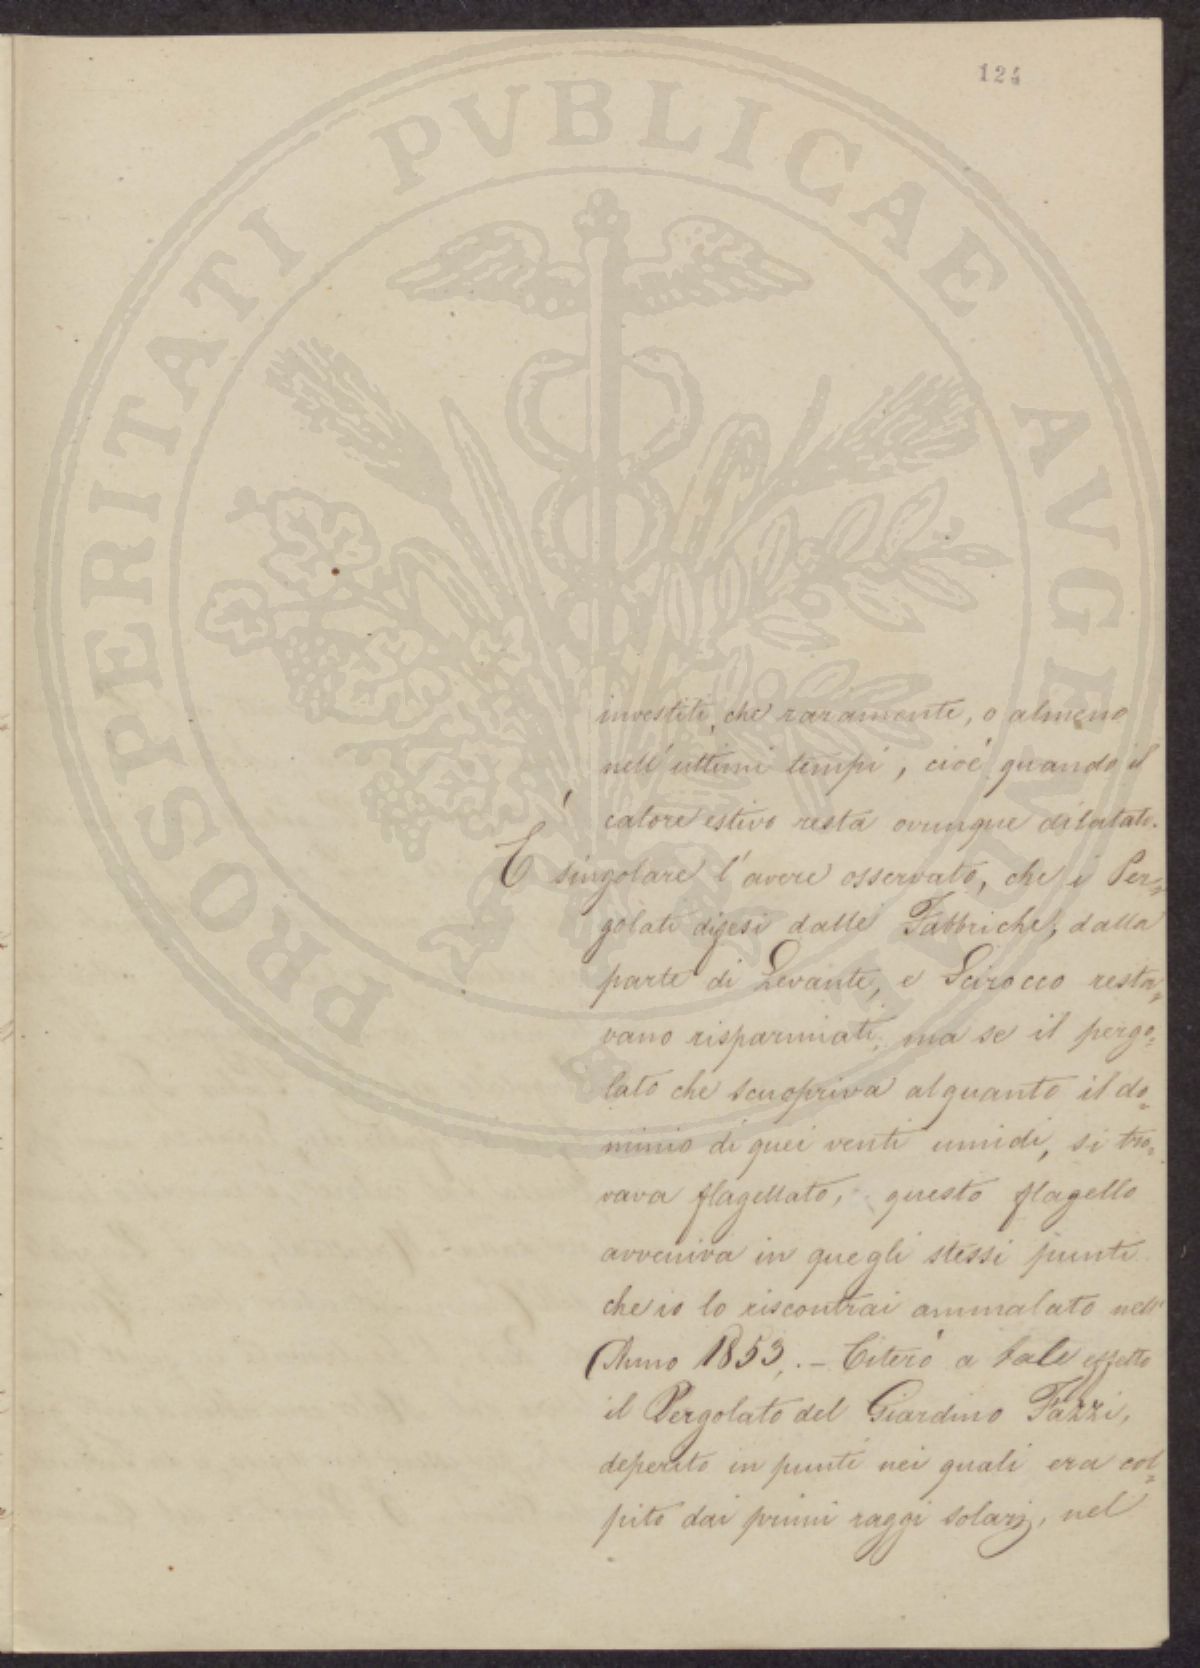 124
PROSPERITATI PVBLICAE AVGENDAE
investiti, che raramente, o almeno
nell'ultimi tempi, cioè quando il
calore estivo resta ovunque dilatato.
È singolare l'avere osservato, che i Per=
golati difesi dalle Fabbriche, dalla
parte di Levante, e Scirocco resta=
vano risparmiati; ma se il pergo=
lato che scuopriva alquanto il do=
minio di quei venti umidi, si tro=
vava flagellato, questo flagello
avveniva in quegli stessi punti
che io lo riscontrai ammalato nell'
Anno 1853. – Citerò a tale effetto
il Pergolato del Giardino Fazzi,
deperito in punti nei quali era col=
pito dai primi raggi solarj, nel